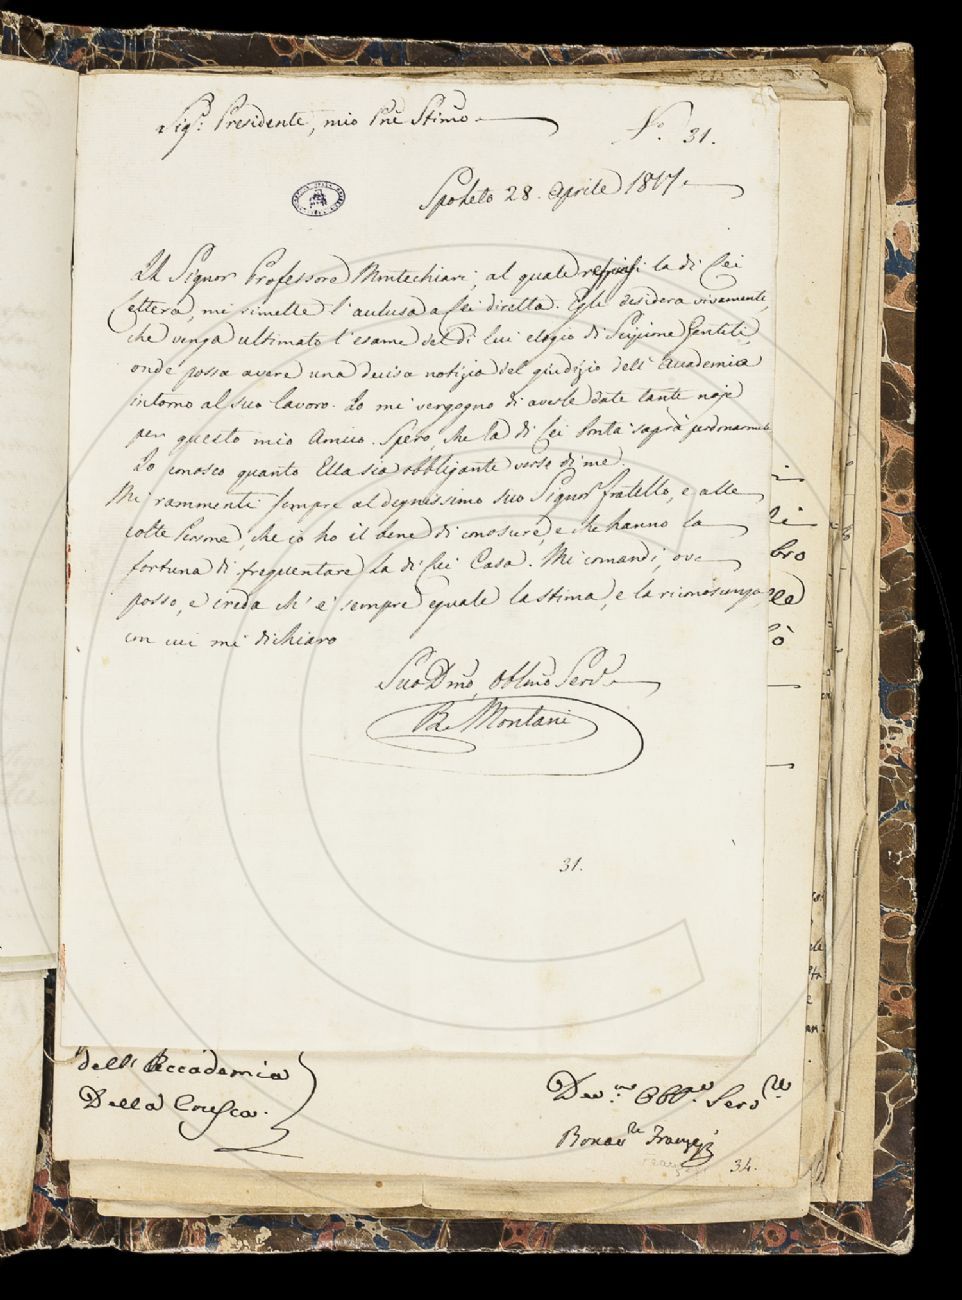 Sig.r Presidente, mio Pne Stimo
N.o 31.
Spoleto 28. Aprile 1817.
Il Signor Professore Montechiari, al quale la di Lei
Lettera, mi rimette l'acclusa a Lei diretta. Egli desidera vivamente,
che venga ultimato l'esame del di lui elogio di Scipione Gentili,
onde possa avere una decisa notizia del giudizio dell'Accademia
intorno al suo lavoro. Io mi vergogno di averle date tante noje
per questo mio Amico. Spero, che la di Lei bontà saprà perdonarmele
Io conosco quanto Ella sia obbligante verso di me.
Mi rammenti sempre al degnissimo suo Signor fratello, e alle
colte Persone, che io ho il bene di conoscere, e che hanno la
fortuna di frequentare la di Lei Casa. Mi comandi, ove
posso, e creda ch'è sempre eguale la stima, e la riconoscenza,
con cui mi dichiaro
Suo Dmo, Obblmo Serv.e
Montani
31.
dell'Accademia
Della Crusca.
Dev.mo Obb.mo Serv.re
34.